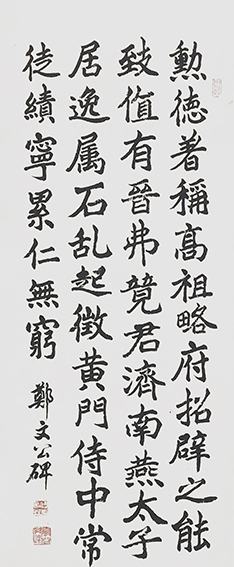 勲徳著稱高祖略府招辟之能
致值有晉弗競君濟南燕太子
居逸属石乱起徴黄門侍中常
徒績寧累仁無窮
鄭文公碑